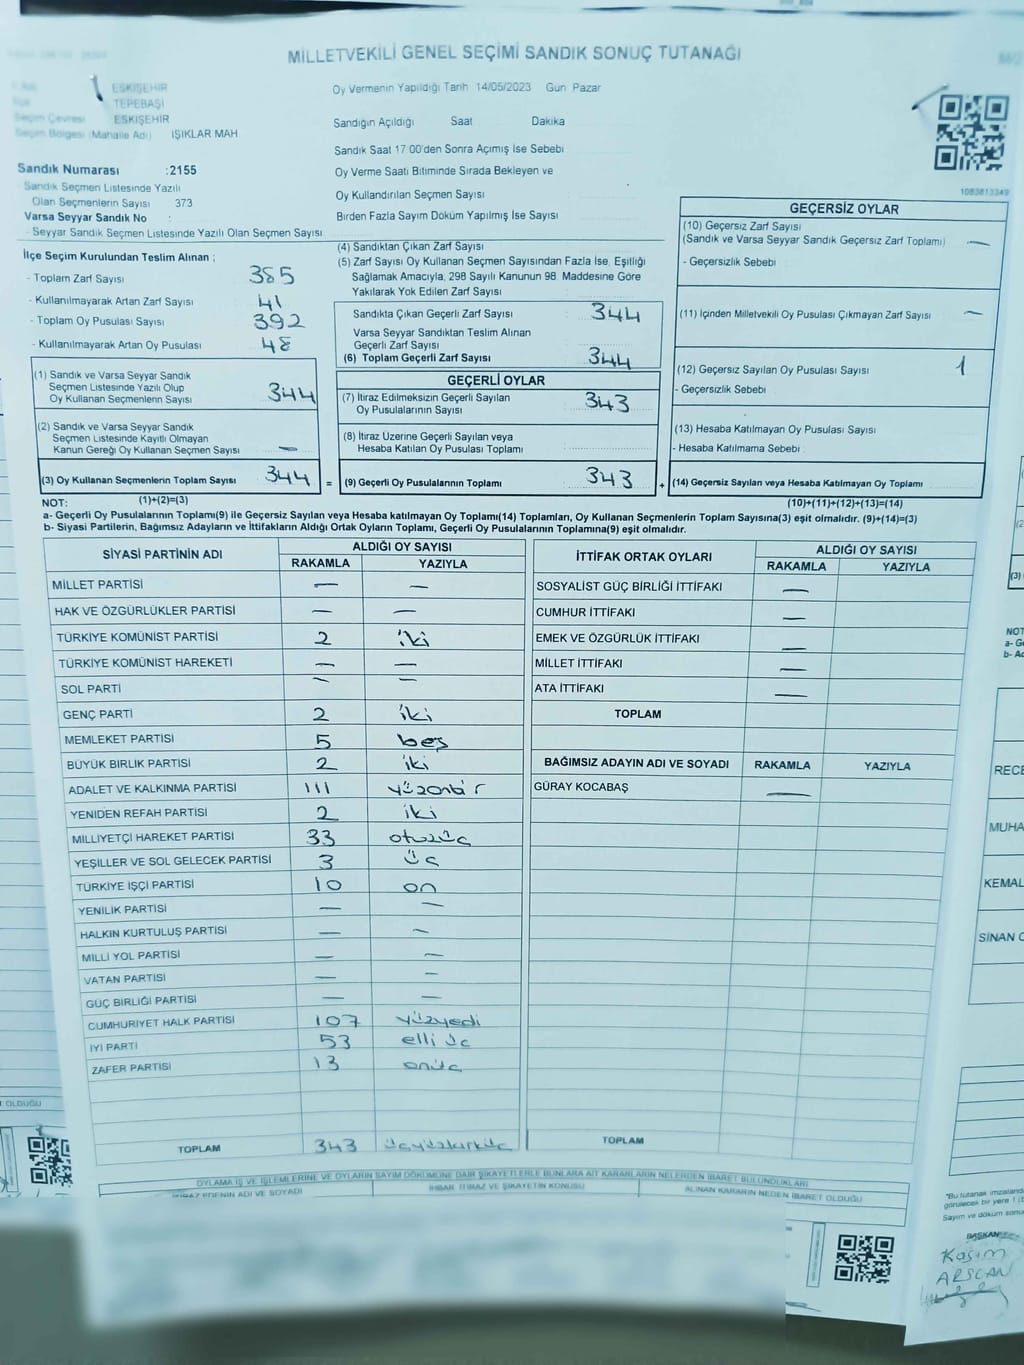 MİLLETVEKİLİ GENEL SEÇİMİ SANDIK SONUÇ TUTANAĞI
ESKİŞEHİR
TEPEBAŞI
Seçim Çevresi ESKİŞEHİR
Seçim Bölgesi (Mahalle Adı) IŞIKLAR MAH
Oy Vermenin Yapıldığı Tarih 14/05/2023 Gün Pazar
Sandığın Açıldığı Saat Dakika
Sandık Saat 17:00'den Sonra Açımış İse Sebebi
Oy Verme Saati Bitiminde Sırada Bekleyen ve
Oy Kullandırılan Seçmen Sayısı
Birden Fazla Sayım Döküm Yapılmış İse Sayısı
1083813349
Sandık Numarası :2155
- Sandık Seçmen Listesinde Yazılı
Olan Seçmenlerin Sayısı 373
Varsa Seyyar Sandık No :
- Seyyar Sandık Seçmen Listesinde Yazılı Olan Seçmen Sayısı
İlçe Seçim Kurulundan Teslim Alınan ;
- Toplam Zarf Sayısı 385
- Kullanılmayarak Artan Zarf Sayısı 41
- Toplam Oy Pusulası Sayısı 392
- Kullanılmayarak Artan Oy Pusulası 48
(1) Sandık ve Varsa Seyyar Sandık
Seçmen Listesinde Yazılı Olup
Oy Kullanan Seçmenlerin Sayısı 344
(2) Sandık ve Varsa Seyyar Sandık
Seçmen Listesinde Kayıtlı Olmayan
Kanun Gereği Oy Kullanan Seçmen Sayısı —
(3) Oy Kullanan Seçmenlerin Toplam Sayısı 344 =
(4) Sandıktan Çıkan Zarf Sayısı
(5) Zarf Sayısı Oy Kullanan Seçmen Sayısından Fazla İse, Eşitliği
Sağlamak Amacıyla, 298 Sayılı Kanunun 98. Maddesine Göre
Yakılarak Yok Edilen Zarf Sayısı
Sandıkta Çıkan Geçerli Zarf Sayısı 344
Varsa Seyyar Sandıktan Teslim Alınan
Geçerli Zarf Sayısı
(6) Toplam Geçerli Zarf Sayısı 344
GEÇERLİ OYLAR
(7) İtiraz Edilmeksizin Geçerli Sayılan
Oy Pusulalarının Sayısı 343
(8) İtiraz Üzerine Geçerli Sayılan veya
Hesaba Katılan Oy Pusulası Toplamı
(9) Geçerli Oy Pusulalarının Toplamı 343 +
GEÇERSİZ OYLAR
(10) Geçersiz Zarf Sayısı
(Sandık ve Varsa Seyyar Sandık Geçersiz Zarf Toplamı) —
- Geçersizlik Sebebi
(11) İçinden Milletvekili Oy Pusulası Çıkmayan Zarf Sayısı —
(12) Geçersiz Sayılan Oy Pusulası Sayısı 1
- Geçersizlik Sebebi
(13) Hesaba Katılmayan Oy Pusulası Sayısı
- Hesaba Katılmama Sebebi
(14) Geçersiz Sayılan veya Hesaba Katılmayan Oy Toplamı
NOT: (1)+(2)=(3) (10)+(11)+(12)+(13)=(14)
a- Geçerli Oy Pusulalarının Toplamı(9) ile Geçersiz Sayılan veya Hesaba katılmayan Oy Toplamı(14) Toplamları, Oy Kullanan Seçmenlerin Toplam Sayısına(3) eşit olmalıdır. (9)+(14)=(3)
b- Siyasi Partilerin, Bağımsız Adayların ve İttifakların Aldığı Ortak Oyların Toplamı, Geçerli Oy Pusulalarının Toplamına(9) eşit olmalıdır.
SİYASİ PARTİNİN ADI ALDIĞI OY SAYISI
RAKAMLA YAZIYLA
MİLLET PARTİSİ — —
HAK VE ÖZGÜRLÜKLER PARTİSİ — —
TÜRKİYE KOMÜNİST PARTİSİ 2 iki
TÜRKİYE KOMÜNİST HAREKETİ — —
SOL PARTİ — —
GENÇ PARTİ 2 iki
MEMLEKET PARTİSİ 5 beş
BÜYÜK BİRLİK PARTİSİ 2 iki
ADALET VE KALKINMA PARTİSİ 111 yüzonbir
YENİDEN REFAH PARTİSİ 2 iki
MİLLİYETÇİ HAREKET PARTİSİ 33 otuzüç
YEŞİLLER VE SOL GELECEK PARTİSİ 3 üç
TÜRKİYE İŞÇİ PARTİSİ 10 on
YENİLİK PARTİSİ — —
HALKIN KURTULUŞ PARTİSİ — —
MİLLİ YOL PARTİSİ — —
VATAN PARTİSİ — —
GÜÇ BİRLİĞİ PARTİSİ — —
CUMHURİYET HALK PARTİSİ 107 yüzyedi
İYİ PARTİ 53 elli üç
ZAFER PARTİSİ 13 onüç
TOPLAM 343 üçyüzkırküç
İTTİFAK ORTAK OYLARI ALDIĞI OY SAYISI
RAKAMLA YAZIYLA
SOSYALİST GÜÇ BİRLİĞİ İTTİFAKI —
CUMHUR İTTİFAKI —
EMEK VE ÖZGÜRLÜK İTTİFAKI —
MİLLET İTTİFAKI —
ATA İTTİFAKI —
TOPLAM
BAĞIMSIZ ADAYIN ADI VE SOYADI RAKAMLA YAZIYLA
GÜRAY KOCABAŞ —
TOPLAM
OYLAMA İŞ VE İŞLEMLERİNE VE OYLARIN SAYIM DÖKÜMÜNE DAİR ŞİKAYETLERLE BUNLARA AİT KARARLARIN NELERDEN İBARET BULUNDUKLARI
İTİRAZ EDENİN ADI VE SOYADI İHBAR, İTİRAZ VE ŞİKAYETİN KONUSU ALINAN KARARIN NEDEN İBARET OLDUĞU
OLDUĞU
(3)
NOT
a- G
b- A
RECE
MUHA
KEMAL
SİNAN O
"Bu tutanak imzalandı
görülecek bir yere
Sayım ve döküm sonu
BAŞKAN
Kasım
ARSLAN